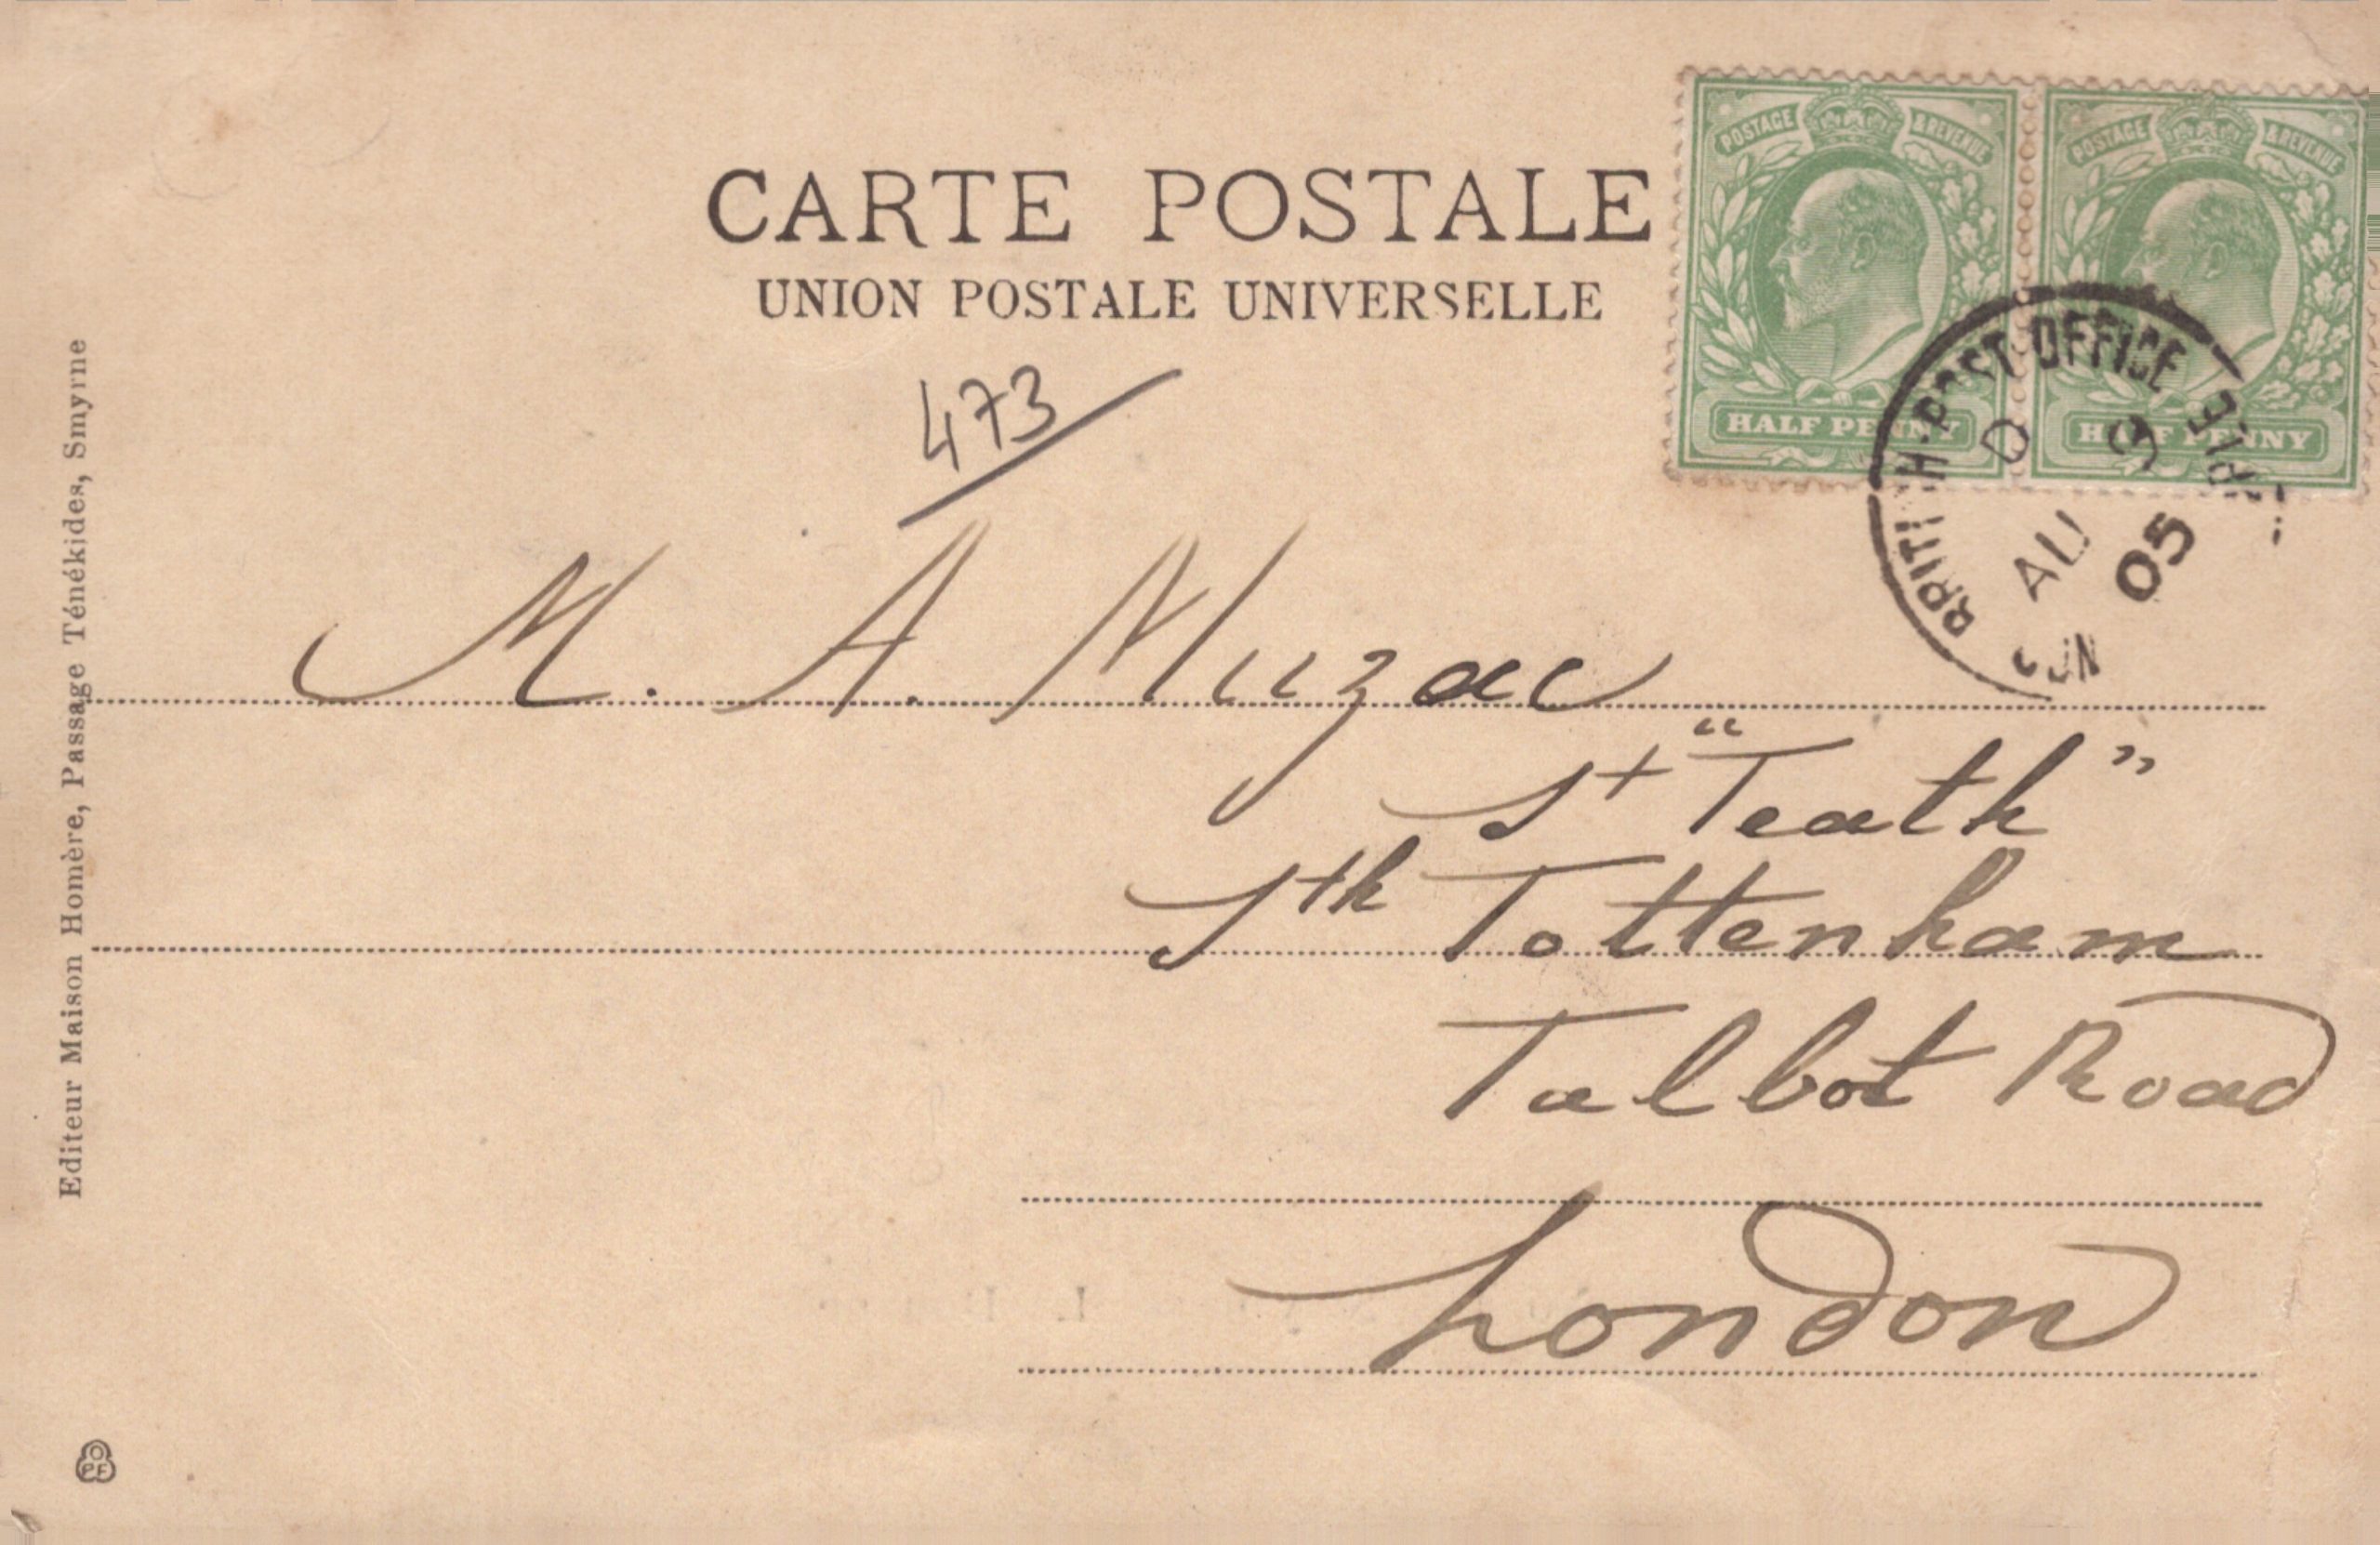 CARTE POSTALE
UNION POSTALE UNIVERSELLE
POSTAGE & REVENUE
HALF PENNY
POSTAGE & REVENUE
HALF PENNY
POST OFFICE
D
AU 9
05
473
M. A. Muzac
St "Teath"
Sth Tottenham
Talbot Road
London
Editeur Maison Homère, Passage Ténékides, Smyrne
OPF